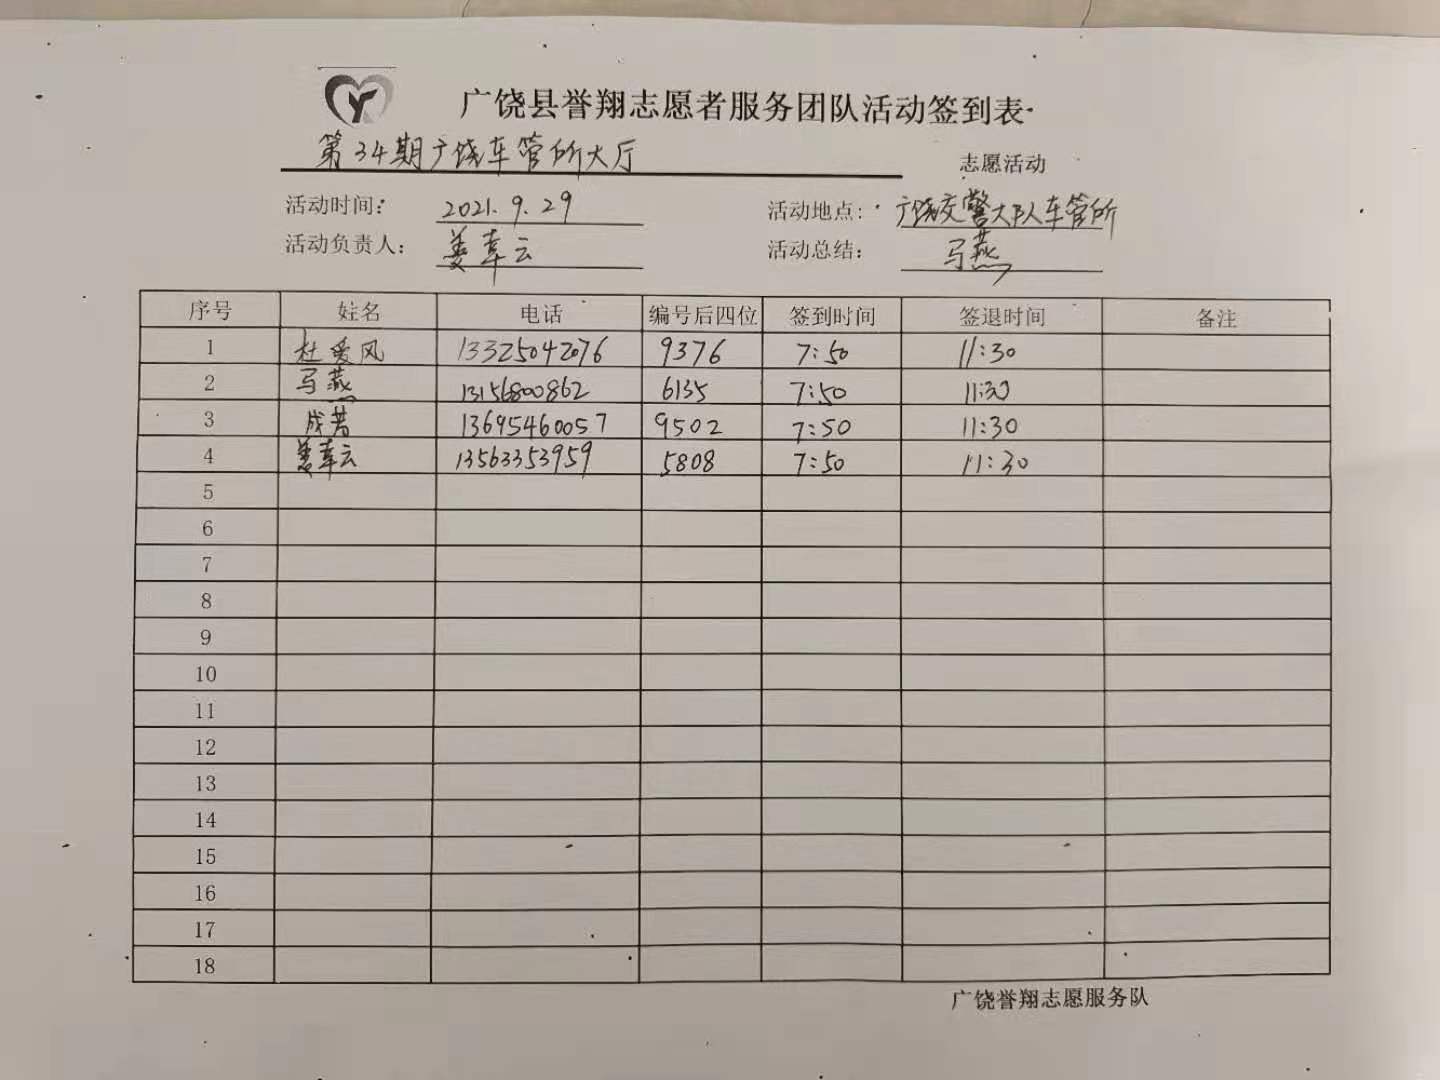 广饶县誉翔志愿者服务团队活动签到表
第34期广饶车管所大厅 志愿活动
活动时间: 2021.9.29 活动地点: 广饶交警大队车管所
活动负责人: 姜幸云 活动总结: 马燕
序号 姓名 电话 编号后四位 签到时间 签退时间 备注
1 杜爱风 13325042076 9376 7:50 11:30
2 马燕 13156800862 6135 7:50 11:30
3 成芳 13695460057 9502 7:50 11:30
4 姜幸云 13563353959 5808 7:50 11:30
5
6
7
8
9
10
11
12
13
14
15
16
17
18
广饶誉翔志愿服务队